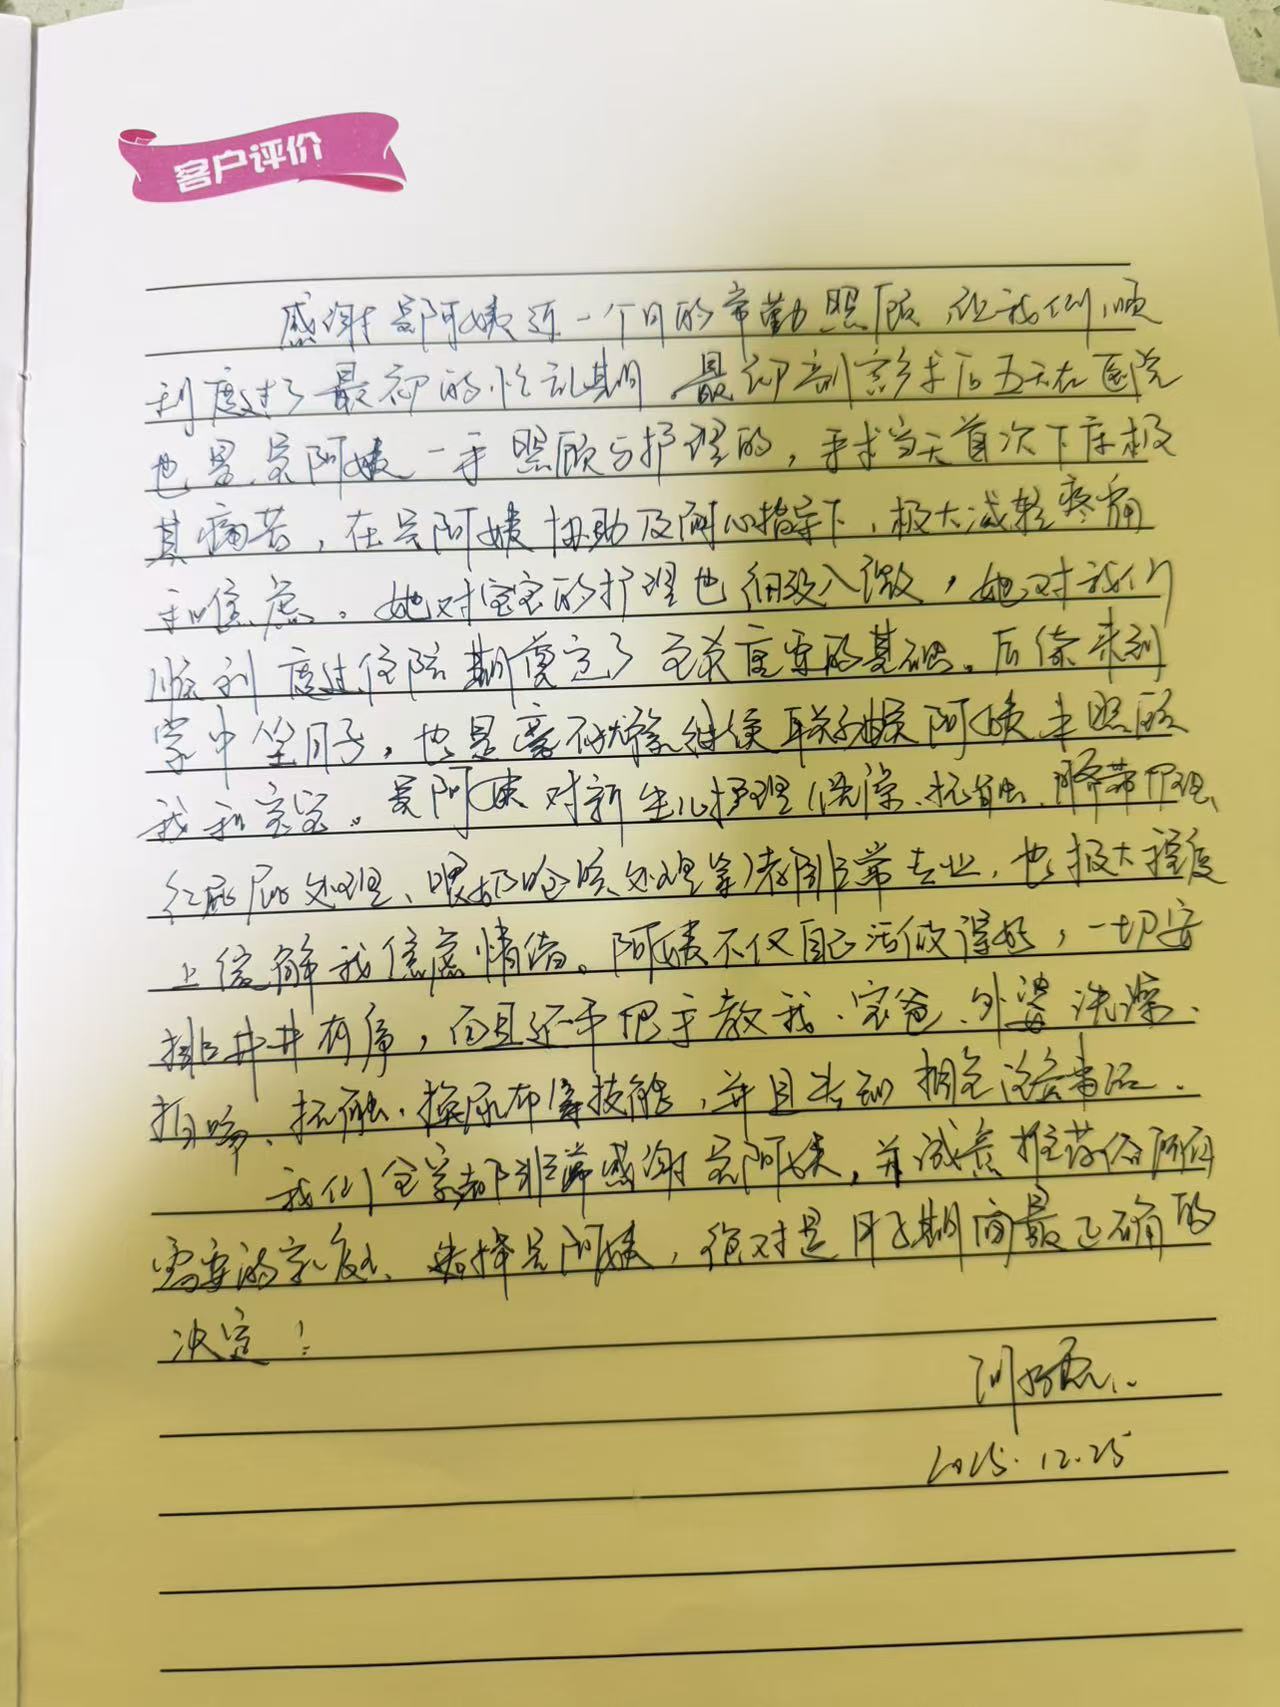 客户评价
感谢吴阿姨近一个月的辛勤照顾,让我们顺
利度过了最初的忙乱期。最初剖宫产术后五天在医院
也是吴阿姨一手照顾与护理的,手术当天首次下床极
其痛苦,在吴阿姨协助及耐心指导下,极大减轻疼痛
和焦虑。她对宝宝的护理也细致入微,她对我们
顺利度过住院期奠定了至关重要的基础。后续来到
家中坐月子,也是毫不犹豫继续联系吴阿姨来照顾
我和宝宝。吴阿姨对新生儿护理(洗澡、抚触、脐带护理、
红屁屁处理、喂奶呛咳处理等)都非常专业,也极大程度
上缓解我焦虑情绪。阿姨不仅自己活做得好,一切安
排井井有序,而且还手把手教我、宝爸、外婆洗澡、
拍嗝、抚触、换尿布等技能,并且告知相关注意事项.
我们全家都非常感谢吴阿姨,并诚意推荐给所有
需要的家庭、选择吴阿姨,绝对是月子期间最正确的
决定!
2025.12.25